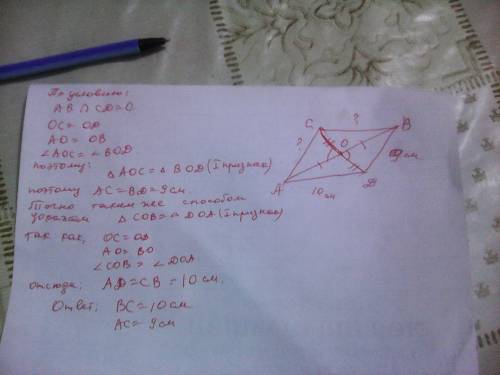 По условию:
AB ∩ CD = O
OC = OD
AO = OB
∠AOC = ∠BOD
поэтому: △AOC = △BOD (I признак)
поэтому AC = BD = 9 см.
Точно таким же способом
△COB = △DOA (I признак)
так как, OC = OD
AO = BO
∠COB = ∠DOA.
отсюда: AD = CB = 10 см.
Ответ: BC = 10 см
AC = 9 см
C ? B
? O 9 см
A D
10 см